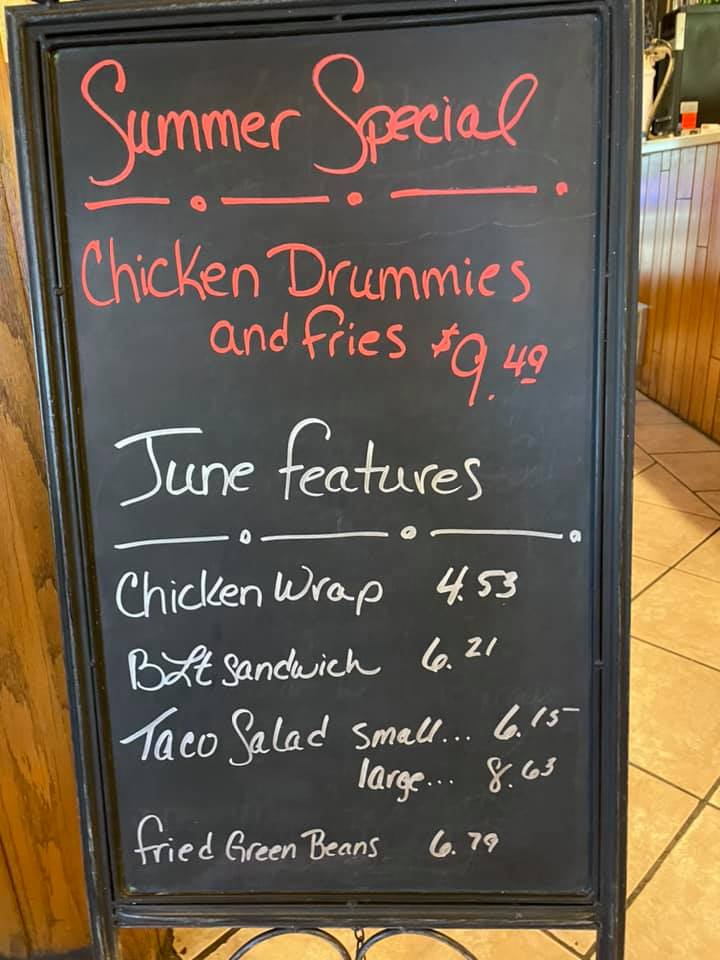 Summer Special
Chicken Drummies
and fries $9.49
June features
Chicken Wrap 4.53
BLt Sandwich 6.21
Taco Salad small... 6.15
large... 8.63
fried Green Beans 6.79